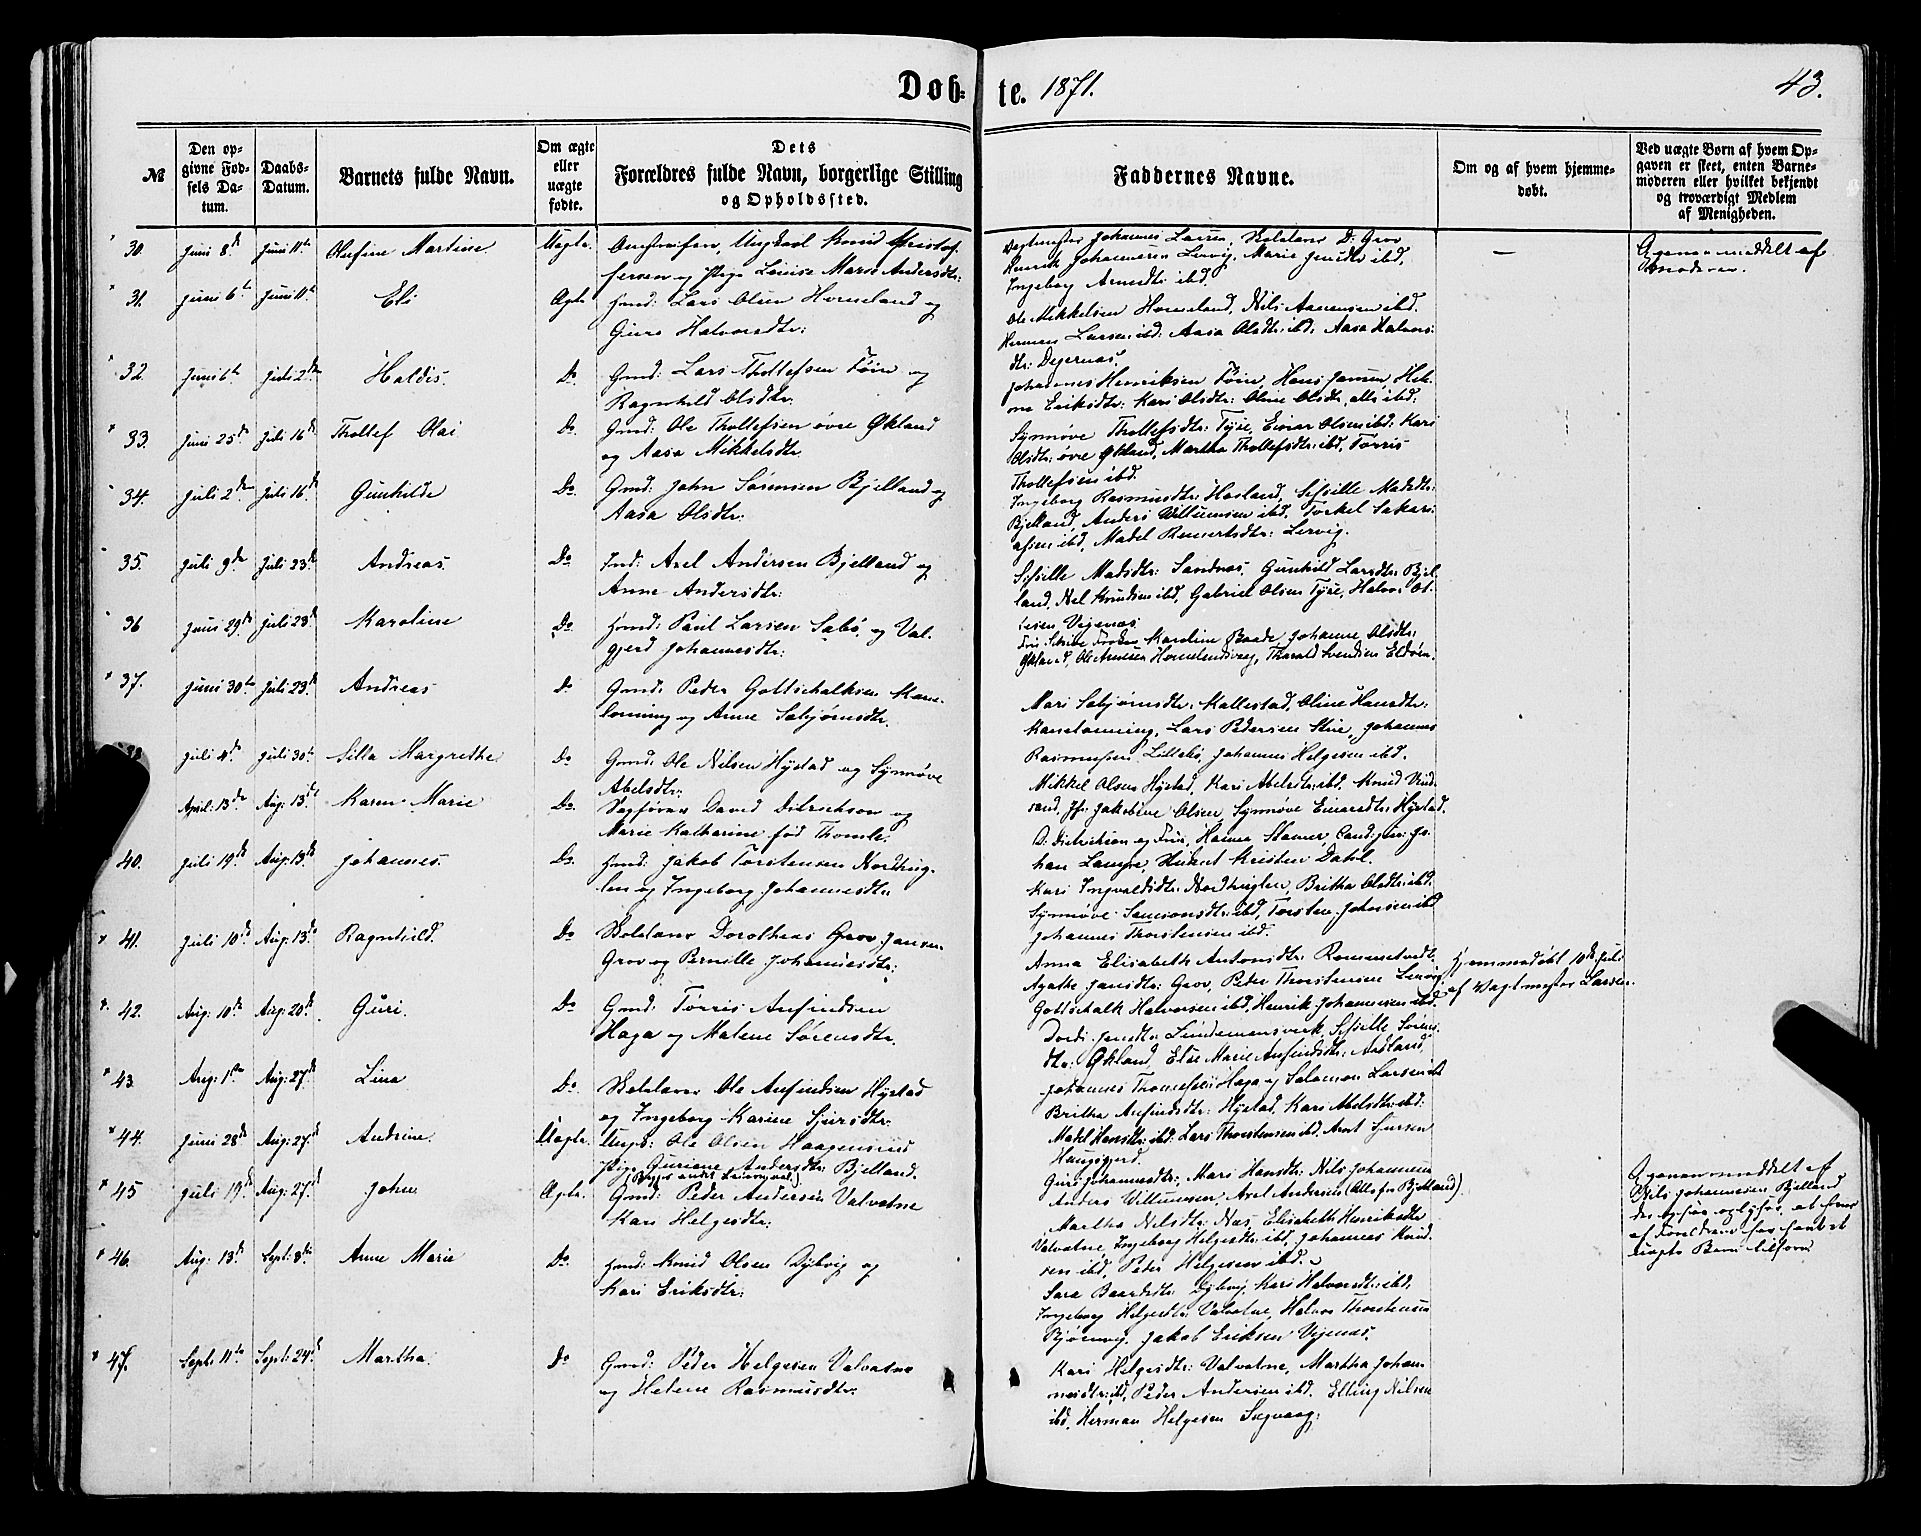 Døb-
te. 1871.
43.
№
Den op-
givne Fød-
sels Da-
tum.
Daabs-
Datum.
Barnets fulde Navn.
Om ægte
eller
uægte
fødte.
Dets
Forældres fulde Navn, borgerlige Stilling
og Opholdssted.
Faddernes Navne.
Om og af hvem hjemme-
døbt.
Ved uægte Børn af hvem Op-
gaven er skeet, enten Barne-
moderen eller hvilket bekjendt
og troværdigt Medlem
af Menigheden.
30. Juni 8de Juni 11te Olufine Martine Uægte. Ungkarl Knud Kristof-
fersen og Pige Lovise Marie Andersdtr:
Vagtmester Johannes Larsen, Skolelærer D. Grov
Henrik Johannesen Lervig, Marie Jensdtr ibd,
Ingeborg Arnesdtr ibd.
—
Opgaven meddelt af
Moderen.
31. Juni 6te Juni 11te Eli Ægte Hmd: Lars Olsen Horneland og
Guro Halvorsdtr:
Ole Mikkelsen Horneland, Nils Aamensen ibd.
Herman Larsen ibd: Aasa Olsdtr: ibd: Aasa Halvors-
dtr: Degernæs.
32. Juni 6te Juli 2den Haldis. Do Gmd: Lars Thollefsen Tøin og
Ragnhild Olsdtr:
Johannes Henriksen Tøin, Hans Jansen, Hel-
ene Eriksdtr: Kari Olsdtr: Oline Olsdtr, alle ibd.
33. Juni 25de Juli 16de Thollef Olai Do Gmd: Ole Thollefsen øvre Økland
og Aasa Mikkelsdtr.
Synnøve Thollefsdtr: Tyse, Einar Olsen ibd: Kari
Olsdtr: øvre Økland, Martha Thollefsdtr: ibd, Tørris
Thollefsen ibd.
34. Juli 2den Juli 16de Gunhilde Do Gmd: John Sørensen Bjelland og
Aasa Olsdtr:
Ingeborg Rasmusdtr: Hosland, Sissille Madsdtr:
Bjelland, Anders Villumsen ibd. Torkel Sakari-
assen ibd, Madel Reinertsdtr: Lervig.
35. Juli 9de Juli 23de Andreas. Do Ind: Axel Andersen Bjelland og
Anne Andersdtr:
Sissille Madsdtr: Sandnæs, Gunhild Larsdtr: Bjel-
land, Nel Knudsen ibd, Gabriel Olsen Tyse, Halvor Ol-
sen Vejenæs
36 Juni 29de Juli 23de Karoline Do Hmd: Paul Larsen Sabø, og Val-
gjerd Johannesdtr:
Karoline Baade, Johanne Olsdtr:
Økland, Ole Arnesen Hornelandsvaag, Tharald Svendsen Eldøen.
37. Juni 30te Juli 23de Andreas Do Gmd: Peder Gottschalksen Kane-
lønning og Anne Sebjørnsdtr.
Mari Sebjørnsdtr: Kallestad, Oline Hansdtr:
Kanelønning, Lars Pedersen Stue, Johannes
Rasmussen Littebø, Johannes Helgesen ibd.
38. Juli 4de Juli 30te Silla Margrethe Do Gmd: Ole Nilsen Hystad og Synnøve
Abelsdtr:
Mikkel Olsen Hystad, Kari Abelsdtr: ibd. Knud Knud-
sen, Jfr: Jakobine Olsen, Synnøve Einarsdtr: Hystad.
April: 13de Aug: 13de Karen Marie Do. Sagfører David Ditrichson og
Marie Katharine fød Thomle.
D. Ditrichson og Frue, Hanna Stamer, Cand: jur: Jo-
han Lampe, Kristen Dahl.
40. Juli 19de Aug: 13de Johannes. Do. Hmd: Jakob Torstensen Nordhug-
len og Ingeborg Johannesdtr.
Kari Ingvaldsdtr: Nordhuglen, Britha Olsdtr: ibd:
Synnøve Samsonsdtr: ibd, Torsten Johnsen ibd
Johannes Thorstensen ibd.
41. Juli 10de Aug: 13de Ragnhild. Do Skolelærer Dorotheus Grov Jansen
Grov og Pernille Johannesdtr:
Anna Elisabeth Antonsdtr: Rommetvedt,
Agathe Jansdtr: Grov, Peder Thorstensen Lervig
Gottschalk Halvorsen ibd, Henrik Johannesen ibd.
Hjemmedøbt 10de Juli
af Vagtmester Larsen.
42. Aug: 10de Aug: 20de Guri. Do Gmd: Tørris Anfindsen
Haga og Malene Sørensdtr.
Dordi Jensdtr: Lindemansverk, Sissille Sørens-
dtr: Økland, Else Marie Anfindsdtr: Aadland,
Johannes Thomessen Haga og Salomon Larsen ibd
43. Aug: 1ste Aug: 27de Lina Do Skolelærer Ole Anfindsen Hystad
og Ingeborg Karine Sjursdtr.
Britha Anfindsdtr: Hystad, Kari Abelsdtr: ibd:
Madel Hansdtr: ibd: Lars Thorstensen ibd. Arnt Sjursen
Haugsgjerd.
44. Juni 28de Aug: 27de Andrine. Uægte. Ungk: Ole Olsen Haagensund
Pige Guriane Andersdtr: Bjelland.
(Begges andet Leiermaal.)
Guri Johannesdtr:, Mari Hansdtr: Nils Johannesen
Anders Villumsen, Axel Andersen (Alle fr Bjelland).
Opgaven meddelt af
Nils Johannesen Bjelland
der ogsaa oplyser, at hver
af Forældrene har havt et
uægte Barn tilforn
45 Juli 19de Aug: 27de John. Ægte. Gmd: Peder Andersen Valvatne
Kari Helgesdtr:
Martha Nilsdtr: Næs, Elisabeth Henriksdtr
Valvatne, Ingeborg Helgesdtr: ibd, Johannes Knud-
sen ibd, Peder Helgesen ibd.
46. Aug: 13de Sept: 3die Anne Marie Do. Hmd: Knud Olsen Dybvig og
Kari Eriksdtr:
Sara Baardsdtr: Dybvig, Kari Halvorsdtr: ibd,
Ingeborg Helgesdtr. Valvatne, Halvor Thorstensen
Bjørnevig, Jakob Eriksen Vejenæs.
47. Sept: 11te Sept: 24de Martha. Do Gmd: Peder Helgesen Valvatne
og Helene Rasmusdtr.
Kari Helgesdtr: Valvatne, Martha Johan-
nesdtr: ibd, Peder Andersen ibd. Elling Nilsen
ibd, Herman Helgesen Sagvaag.